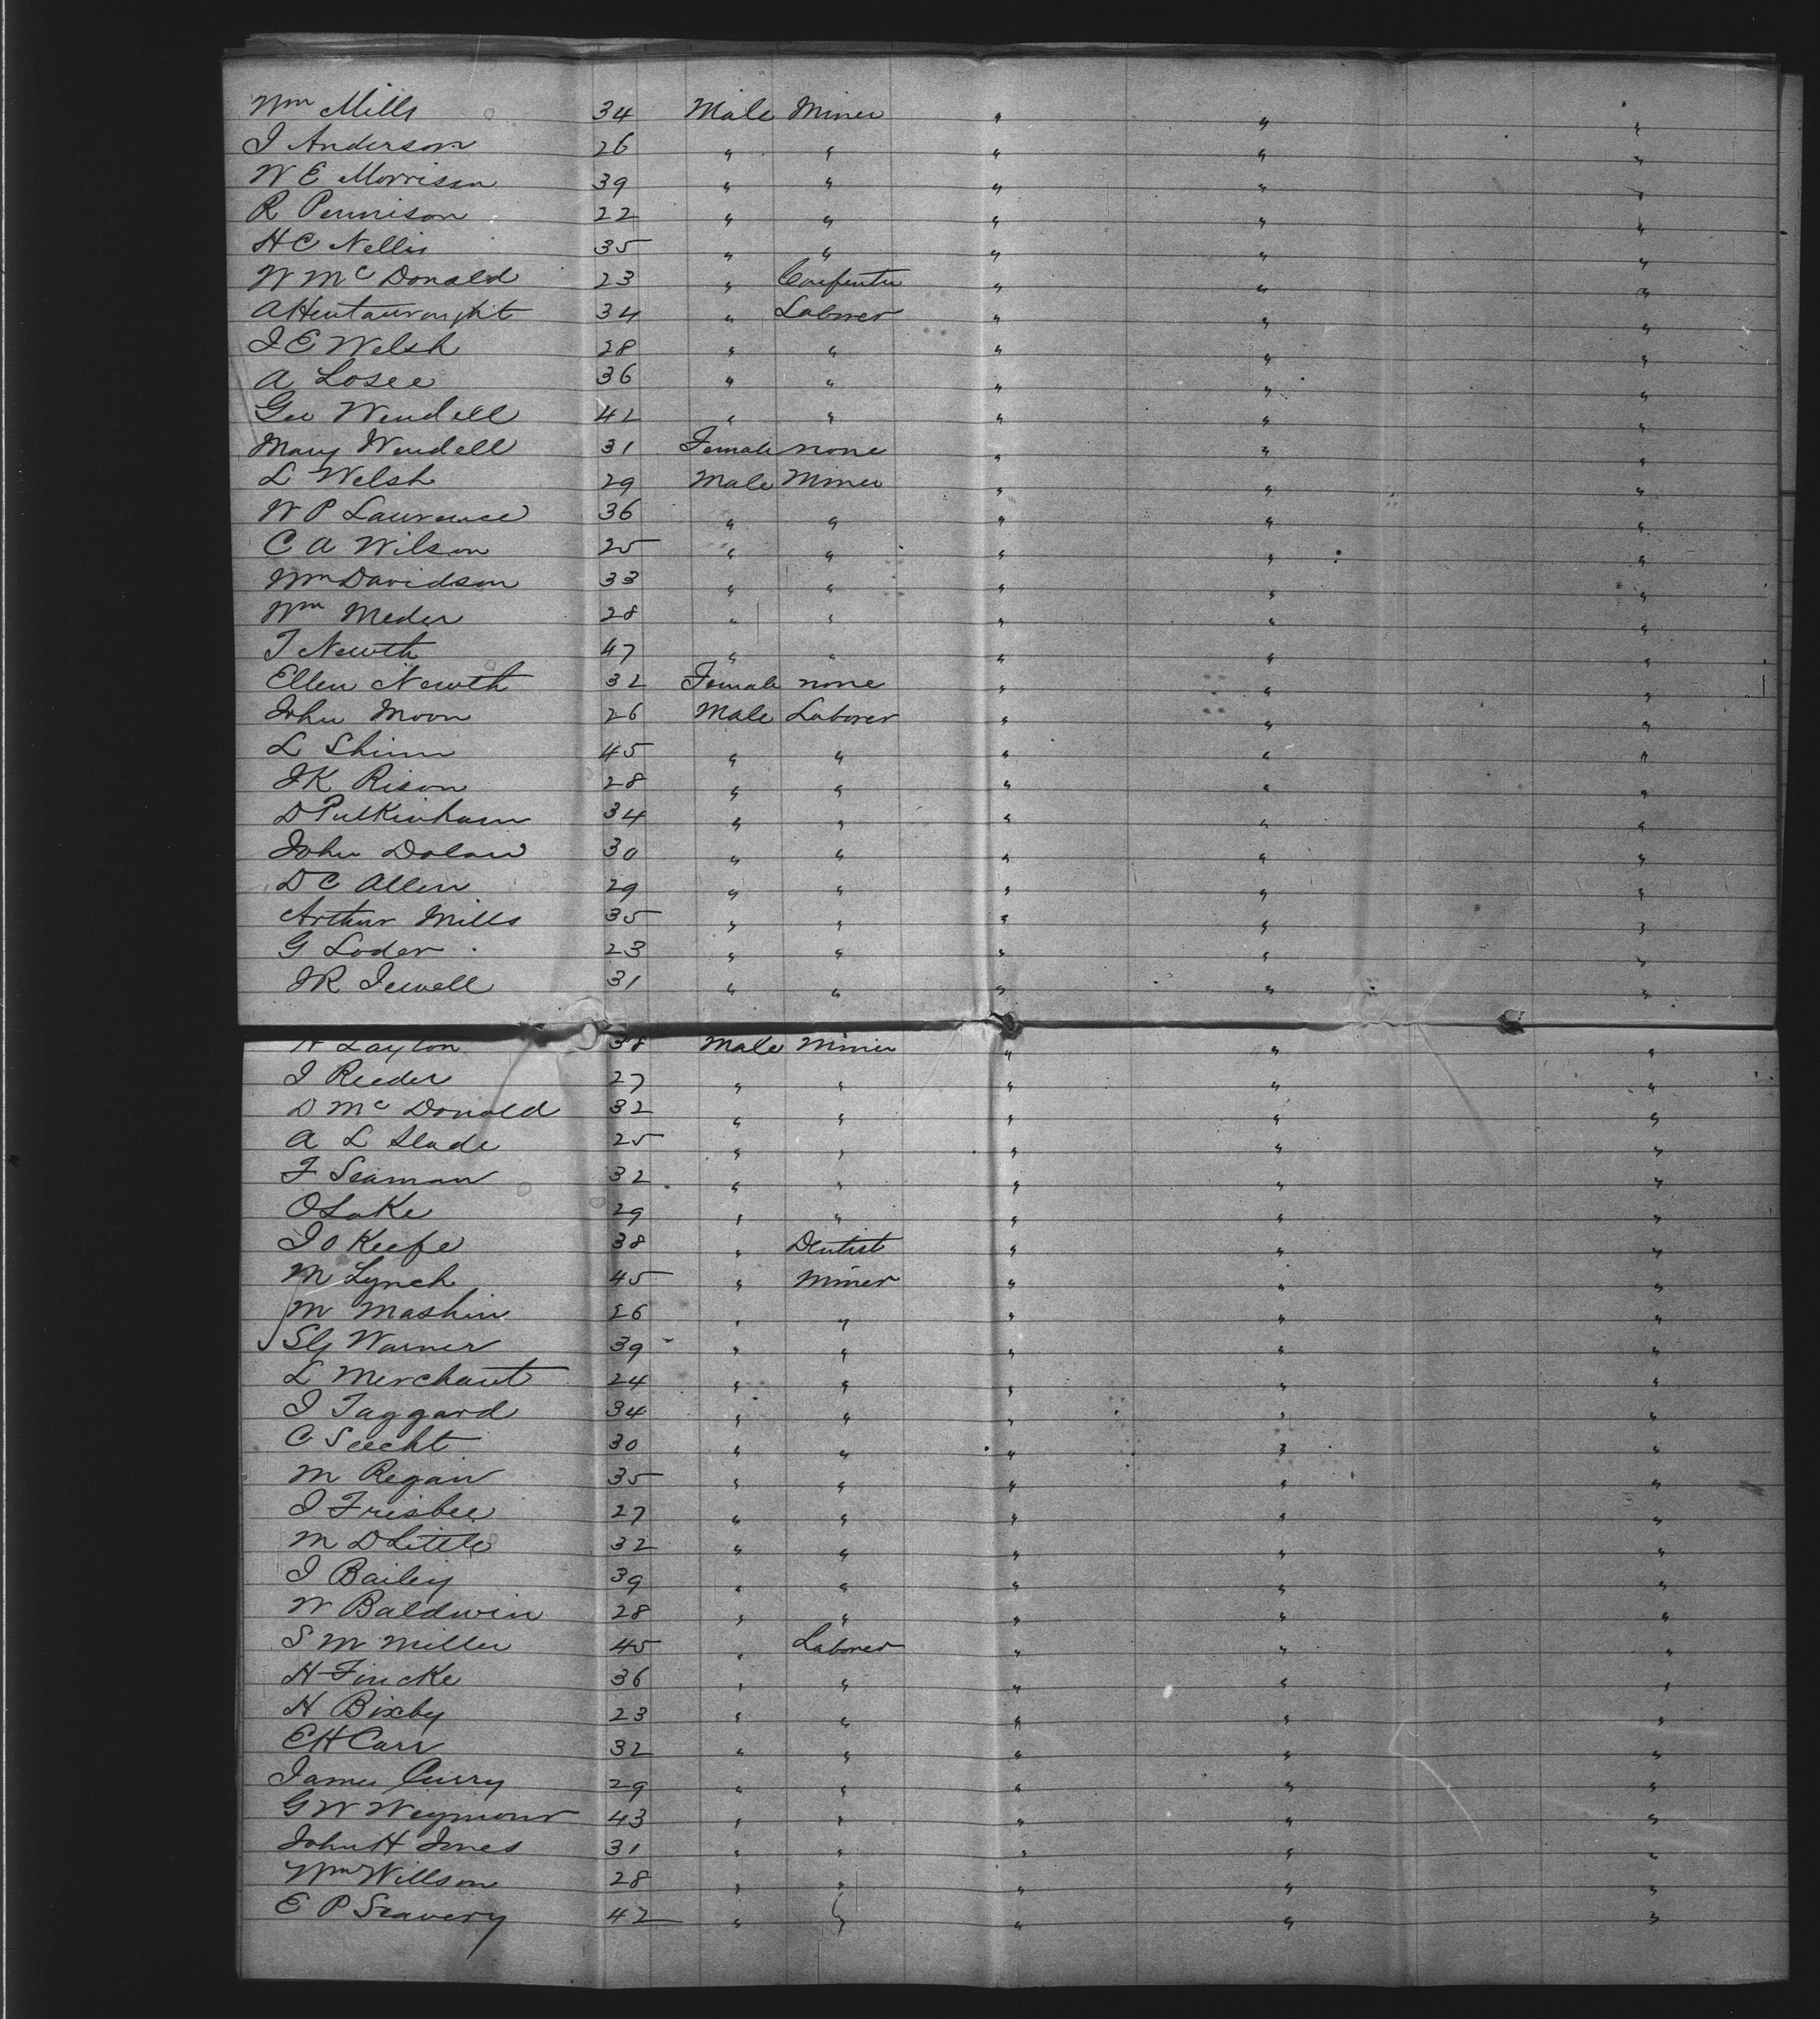 Wm Mills 34 Male Miner " " "
J Anderson 26 " " " " "
W E Morrison 39 " " " " "
R Pennison 22 " " " " "
H C Nellis 35 " " " " "
W Mc Donald 23 " Carpenter " " "
34 " Laborer " " "
J E Welsh 28 " " " " "
A Losee 36 " " " " "
Geo Wendell 42 " " " " "
Mary Wendell 31 Female none " " "
L Welsh 29 Male Miner " " "
W P Lawrence 36 " " " " "
C A Wilson 25 " " " " "
Wm Davidson 33 " " " " "
Wm Meder 28 " " " " "
T Newth 47 " " " " "
Ellen Newth 32 Female none " " "
John Moon 26 Male Laborer " " "
L Shinn 45 " " " " "
J K Rison 28 " " " " "
D Putkinham 34 " " " " "
John Dolan 30 " " " " "
D C Allen 29 " " " " "
Arthur Mills 35 " " " " "
G Loder 23 " " " " "
J R Jewell 31 " " " " "
N Layton 38 Male Miner " " "
J Reeder 27 " " " " "
D Mc Donald 32 " " " " "
A L Slade 25 " " " " "
F Seaman 32 " " " " "
O Lake 29 " " " " "
J O Keefe 38 " Dentist " " "
M Lynch 45 " Miner " " "
M Mashin 26 " " " " "
Warner 39 " " " " "
L Merchant 24 " " " " "
J Taggard 34 " " " " "
C Seecht 30 " " " " "
M Regan 35 " " " " "
J Frisbee 27 " " " " "
M D Little 32 " " " " "
J Bailey 39 " " " " "
W Baldwin 28 " " " " "
S M Miller 45 " Laborer " " "
H Fincke 36 " " " " "
H Bixby 23 " " " " "
E H Carr 32 " " " " "
James Curry 29 " " " " "
G W Weymour 43 " " " " "
John H Jones 31 " " " " "
Wm Willson 28 " " " " "
E P Seavery 42 " " " " "